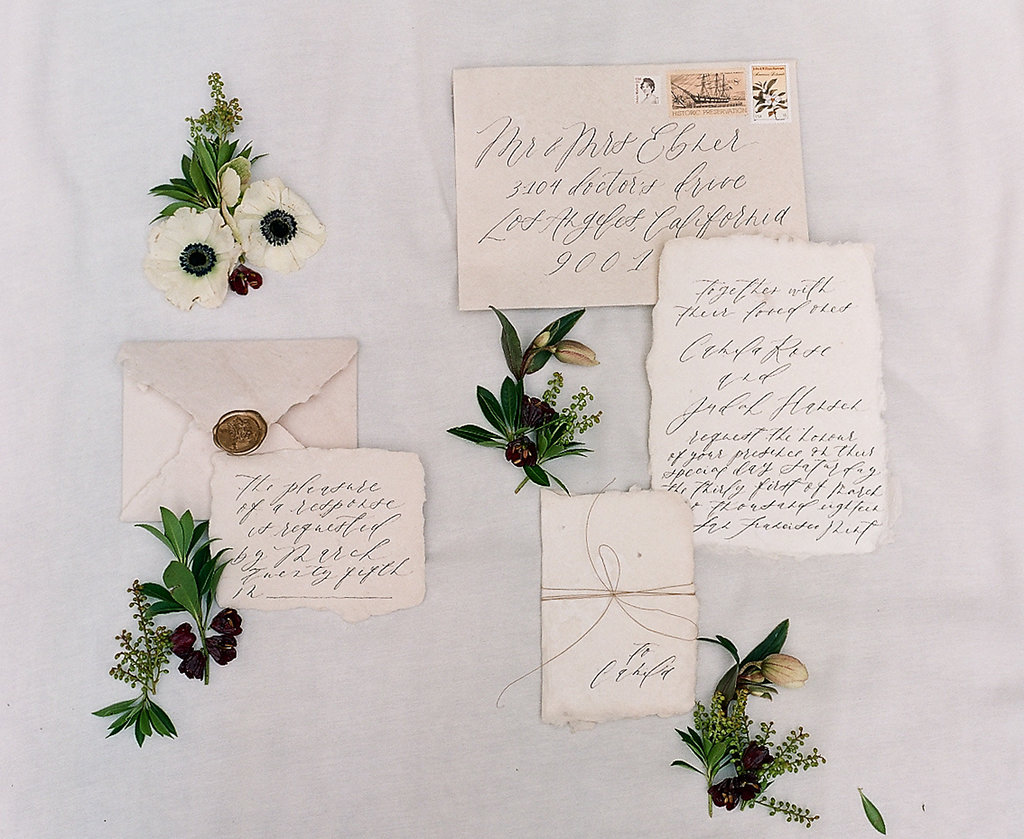 Mr & Mrs Ebner
3104 doctors drive
Los Angeles, California
9001
HISTORIC PRESERVATION
together with
their loved ones
Camila Rose
and
Judah Hansen
request the honour
of your presence on their
special day Saturday
the thirty first of march
thousand eighteen
San Francisco Mint
The pleasure
of a response
is requested
by March
twenty fifth
M
to
Camila